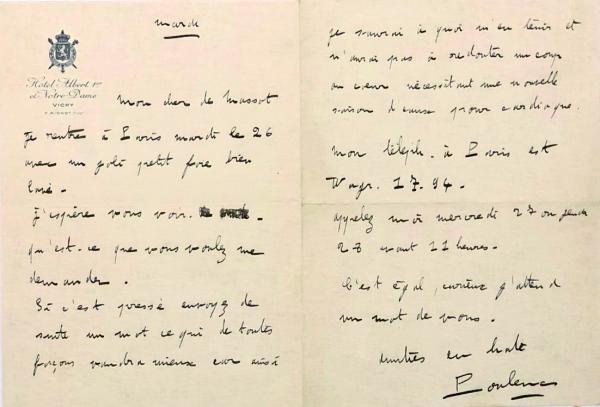 mardi
Hôtel Albert 1er
et Notre-Dame
VICHY
Mon cher de Massot
Je rentre à Paris mardi le 26
avec un joli petit foie bien
lavé.
J'espère vous voir.
qu'est-ce que vous voulez me
demander.
Si c'est pressé envoyez de
suite un mot ce qui de toutes
façons vaudra mieux car ainsi
je saurai à quoi m'en tenir et
n'aurai pas à redouter un coup
au cœur nécessitant une nouvelle
saison d'eaux pour cardiaque.
mon téléph. à Paris est
Wagr. 17.94.
appelez moi mercredi 27 ou jeudi
28 avant 11 heures.
C'est égal, curieux j'attend
un mot de vous.
amitiés en hate
Poulenc